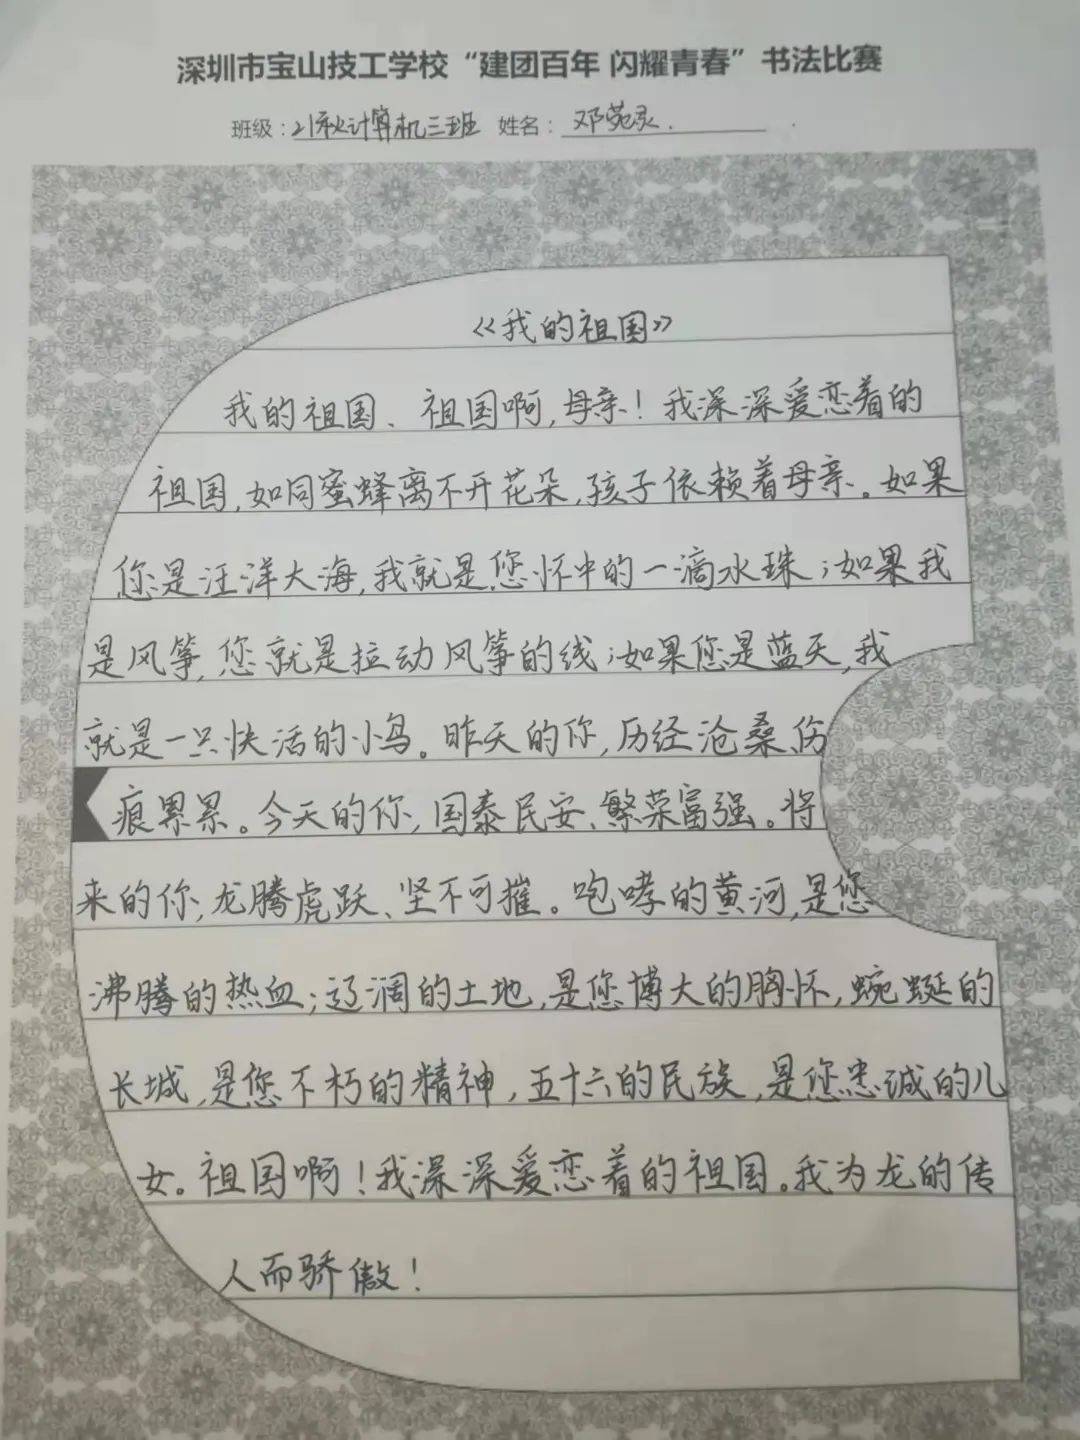 深圳市宝山技工学校“建团百年 闪耀青春”书法比赛
班级：21秋计算机三班 姓名：邓菀灵.
《我的祖国》
我的祖国、祖国啊,母亲！我深深爱恋着的
祖国,如同蜜蜂离不开花朵,孩子依赖着母亲。如果
您是汪洋大海,我就是您怀中的一滴水珠；如果我
是风筝,您就是拉动风筝的线；如果您是蓝天,我
就是一只快活的小鸟。昨天的你,历经沧桑、伤
痕累累。今天的你,国泰民安、繁荣富强。将
来的你,龙腾虎跃、坚不可摧。咆哮的黄河,是您
沸腾的热血；辽阔的土地,是您博大的胸怀,蜿蜒的
长城,是您不朽的精神,五十六的民族,是您忠诚的儿
女。祖国啊！我深深爱恋着的祖国。我为龙的传
人而骄傲！